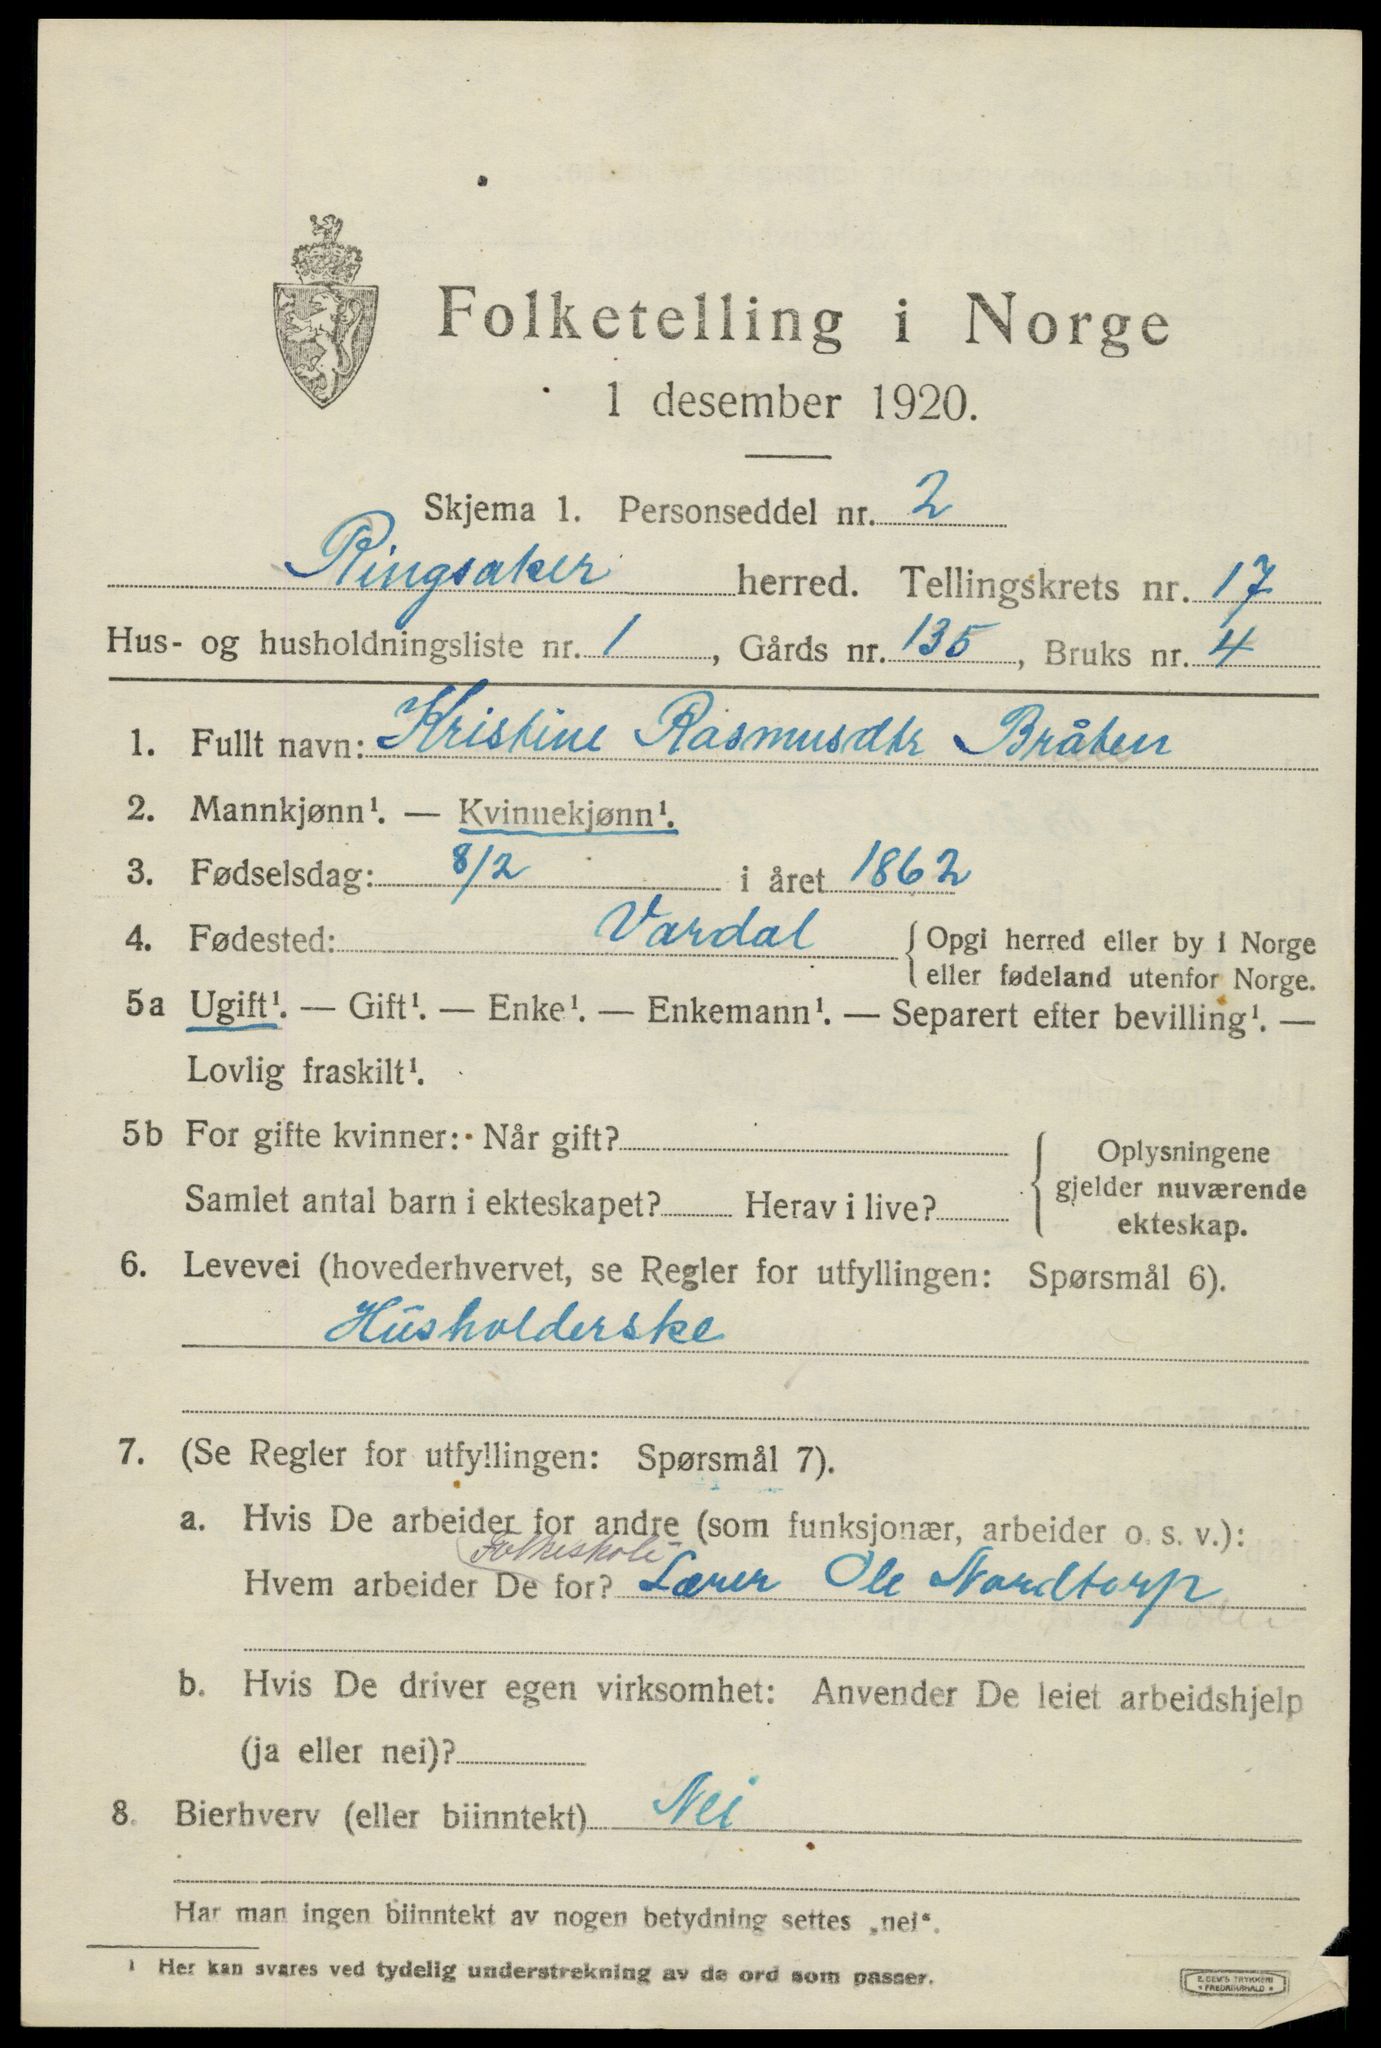 Folketelling i Norge
1 desember 1920.
Skjema 1. Personseddel nr. 2
Ringsaker herred. Tellingskrets nr. 17
Hus- og husholdningsliste nr. 1, Gårds nr. 135, Bruks nr. 4
1. Fullt navn: Kristine Rasmusdtr Bråten
2. Mannkjønn¹. — Kvinnekjønn¹.
3. Fødselsdag: 8/2 i året 1862
4. Fødested: Vardal { Opgi herred eller by i Norge
eller fødeland utenfor Norge.
5a Ugift¹. — Gift¹. — Enke¹. — Enkemann¹. — Separert efter bevilling¹. —
Lovlig fraskilt¹.
5b For gifte kvinner: Når gift?
Samlet antal barn i ekteskapet? Herav i live?
Oplysningene
gjelder nuværende
ekteskap.
6. Levevei (hovederhvervet, se Regler for utfyllingen: Spørsmål 6).
Husholderske
7. (Se Regler for utfyllingen: Spørsmål 7).
a. Hvis De arbeider for andre (som funksjonær, arbeider o. s. v.):
Folkeskole
Hvem arbeider De for? Lærer Ole Nordtorp
b. Hvis De driver egen virksomhet: Anvender De leiet arbeidshjelp
(ja eller nei)?
8. Bierhverv (eller biinntekt) Nei
Har man ingen biinntekt av nogen betydning settes „nei“.
¹ Her kan svares ved tydelig understrekning av de ord som passer.